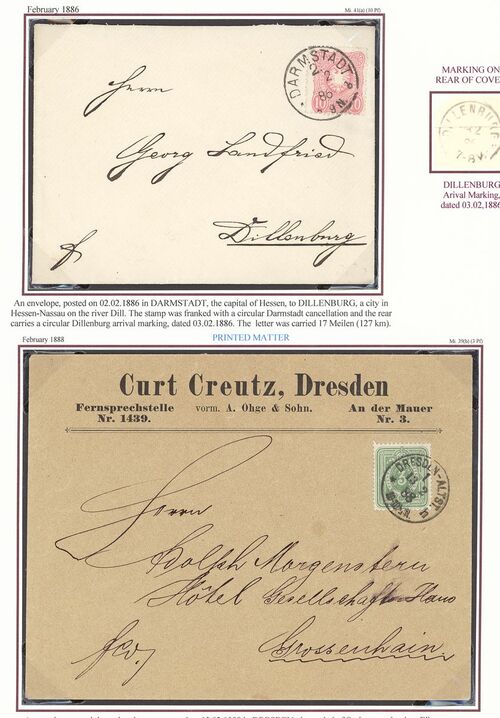 February 1886
Mi. 41(a) (10 Pf)
DARMSTADT
2
2
86
Herrn
Georg Landfried
Dillenburg
MARKING ON
REAR OF COVE
DILLENBURG
2
7-8V.
DILLENBURG
Arival Marking,
dated 03.02,1886
An envelope, posted on 02.02.1886 in DARMSTADT, the capital of Hessen, to DILLENBURG, a city in
Hessen-Nassau on the river Dill. The stamp was franked with a circular Darmstadt cancellation and the rear
carries a circular Dillenburg arrival marking, dated 03.02.1886. The letter was carried 17 Meilen (127 km).
February 1888
PRINTED MATTER
Mi. 39(b) (3 Pf)
Curt Creutz, Dresden
Fernsprechstelle vorm. A. Ohge & Sohn. An der Mauer
Nr. 1439. Nr. 3.
DRESDEN-ALTST.
Herrn
Adolph Morgenstern
Hôtel Gesellschafts-Haus
Grossenhain
fco.